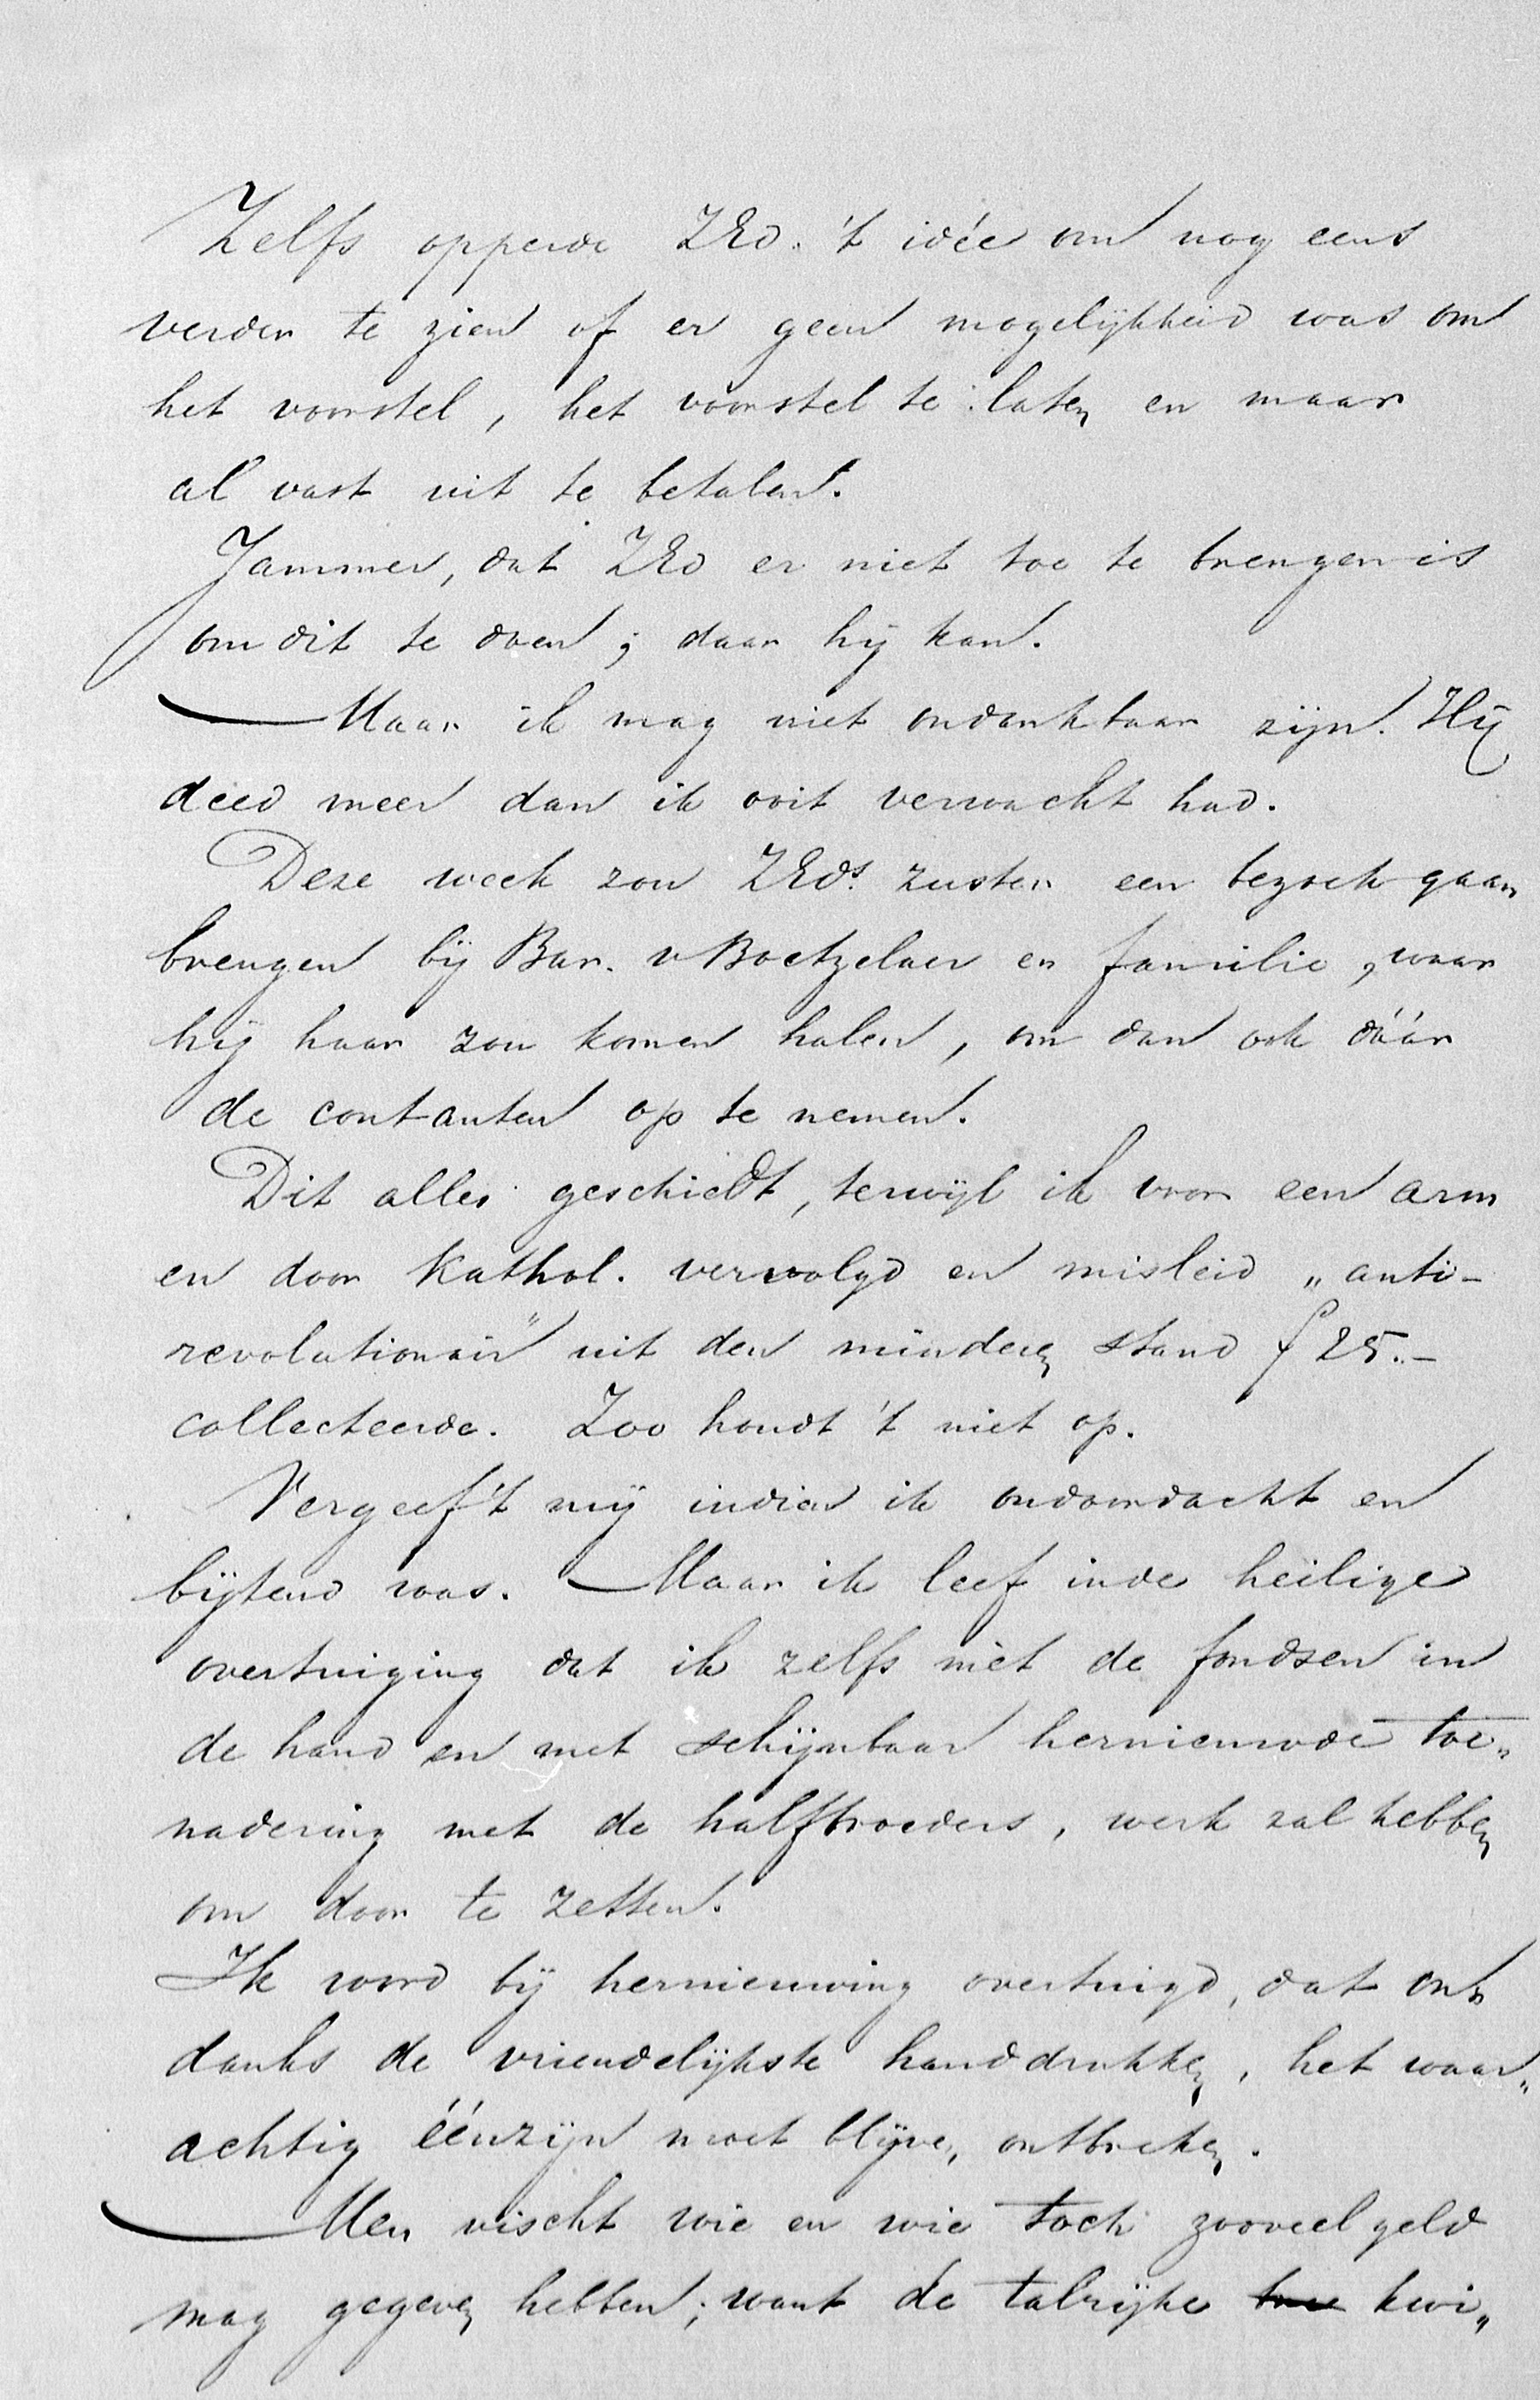 Zelfs opperde ZEd. 't idée om nog eens
verder te zien of er geen mogelijkheid was om
het voorstel, het voorstel te laten en maar
al vast uit te betalen.
Jammer, dat ZEd er niet toe te brengen is
om dit te doen; daar hij kan.
Maar ik mag niet ondankbaar zijn. Hij
deed meer dan ik ooit verwacht had.
Deze week zou ZEds. zuster een bezoek gaan
brengen bij Bar. v Boetzelaer en familie, waar
hij haar zou komen halen, om dan ook dáár
de contanten op te nemen.
Dit alles geschiedt, terwijl ik voor een arm
en door Kathol. vervolgd en misleid „anti-
revolutionair" uit den minderen stand f 25.-
collecteerde. Zoo houdt 't niet op.
Vergeef't mij indien ik ondoordacht en
bijtend was. Maar ik leef in de heilige
overtuiging dat ik zelfs mét de fondsen in
de hand en met schijnbaar hernieuwde toe„
nadering met de halfbroeders, werk zal hebben
om door te zetten.
Ik word bij hernieuwing overtuigd, dat on„
danks de vriendelijkste handdrukken, het waar„
achtig éénzijn moet blijven ontbreken.
Men vischt wie en wie toch zooveel geld
mag gegeven hebben; want de talrijke kwi„